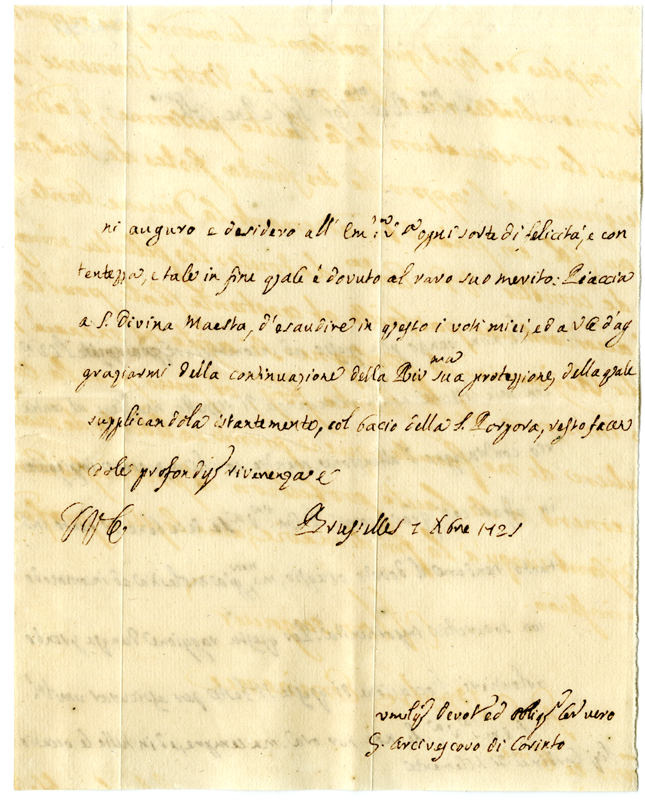 ni auguro e desidero all' Em:ma V.ra ogni sorte di felicità, e con
tentezza, e tale in fine quale è dovuto al raro suo merito: Piaccia
a S. Divina Maestà, d'esaudire in questo i voti miei, ed a VE d'ag
graziarmi della continuazione della Riv.ma sua protezzione, della quale
supplicandola istantemente, col bacio della S. Porpora, resto facen
dole profondiss. riverenza &
Brusselles 7 Xbre 1725
umiliss. Devot. ed obligss. Ser vero
G. Arcivescovo di Corinto